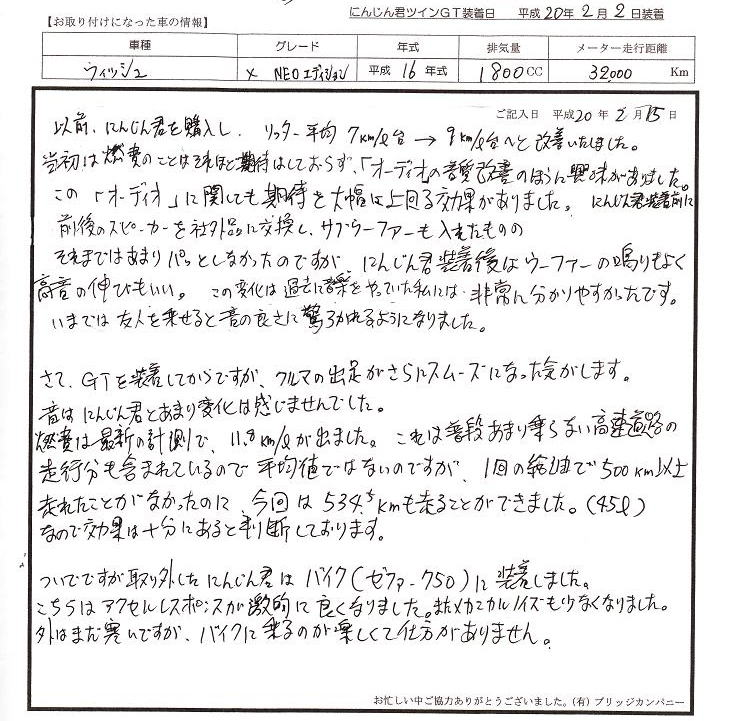 にんじん君ツインGT装着日 平成20年2月2日装着
【お取り付けになった車の情報】
車種 グレード 年式 排気量 メーター走行距離
ウィッシュ X NEOエディション 平成16年式 1800CC 32,000 Km
ご記入日 平成20年2月15日
以前、にんじん君を購入し、リッター平均7km/ℓ台→9km/ℓ台へと改善いたしました。
当初は燃費のことはそれほど期待はしておらず、「オーディオの音質改善のほうに興味がありました。
この「オーディオ」に関しても期待を大幅に上回る効果がありました。にんじん君装着前に
前後のスピーカーを社外品に交換し、サブウーファーも入れたものの
それまではあまりパッとしなかったのですが、にんじん君装着後はウーファーの鳴りもよく
高音の伸びもいい。この変化は過去に音楽をやっていた私には非常に分かりやすかったです。
いまでは友人を乗せると音の良さに驚ろかれるようになりました。
さて、GTを装着してからですが、クルマの出足がさらにスムーズになった気がします。
音はにんじん君とあまり変化は感じませんでした。
燃費は最新の計測で、11.8km/ℓが出ました。これは普段あまり乗らない高速道路の
走行分も含まれているので平均値ではないのですが、1回の給油で500km以上
走れたことがなかったのに、今回は534.5kmも走ることができました。(45ℓ)
なので効果は十分にあると判断しております。
ついでですが取り外したにんじん君はバイク(ゼファー750)に装着しました。
こちらはアクセルレスポンスが激的に良くなりました。またメカニカルノイズも少なくなりました。
外はまだ寒いですが、バイクに乗るのが楽しくて仕方がありません。
お忙しい中ご協力ありがとうございました。(有)ブリッジカンパニー